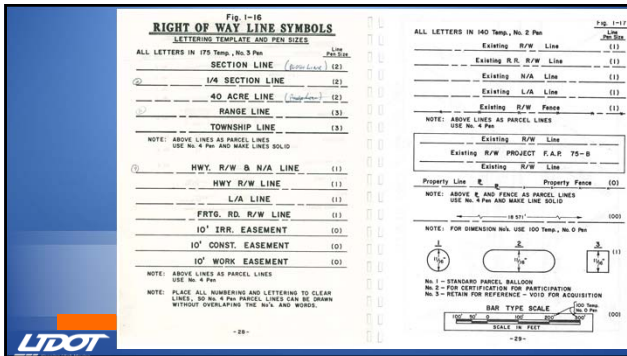 Fig. 1-16
RIGHT OF WAY LINE SYMBOLS
LETTERING TEMPLATE AND PEN SIZES
ALL LETTERS IN 175 Temp., No. 3 Pen
Line Pen Size
SECTION LINE (2)
1/4 SECTION LINE (2)
40 ACRE LINE (2)
RANGE LINE (3)
TOWNSHIP LINE (3)
NOTE: ABOVE LINES AS PARCEL LINES
USE No. 4 Pen AND MAKE LINES SOLID
HWY. R/W & N/A LINE (1)
HWY R/W LINE (1)
L/A LINE (1)
FRTG. RD. R/W LINE (1)
10' IRR. EASEMENT (0)
10' CONST. EASEMENT (0)
10' WORK EASEMENT (0)
NOTE: ABOVE LINES AS PARCEL LINES
USE No. 4 Pen
NOTE: PLACE ALL NUMBERING AND LETTERING TO CLEAR
LINES, SO No. 4 Pen PARCEL LINES CAN BE DRAWN
WITHOUT OVERLAPING THE No's AND WORDS.
-28-
Fig. 1-17
ALL LETTERS IN 140 Temp., No. 2 Pen
Line Pen Size
Existing R/W Line (1)
Existing R.R. R/W Line (1)
Existing N/A Line (1)
Existing L/A Line (1)
Existing R/W Fence (1)
NOTE: ABOVE LINES AS PARCEL LINES
USE No. 4 Pen
Existing R/W Line
Existing R/W PROJECT F.A.P. 75-B
Existing R/W Line
Property Line Property Fence (0)
NOTE: ABOVE ⅊ AND FENCE AS PARCEL LINES
USE No. 4 Pen AND MAKE LINE SOLID
18 571' (00)
NOTE: FOR DIMENSION No's. USE 100 Temp., No. 0 Pen
1 2 3
11/16" 11/16" 11/16" (1)
No. 1 - STANDARD PARCEL BALLOON
No. 2 - FOR CERTIFICATION FOR PARTICIPATION
No. 3 - RETAIN FOR REFERENCE - VOID FOR ACQUISITION
BAR TYPE SCALE
100 Temp.
No. 0 Pen
100' 50' 0 100' 200' 300' (00)
SCALE IN FEET
-29-
UDOT